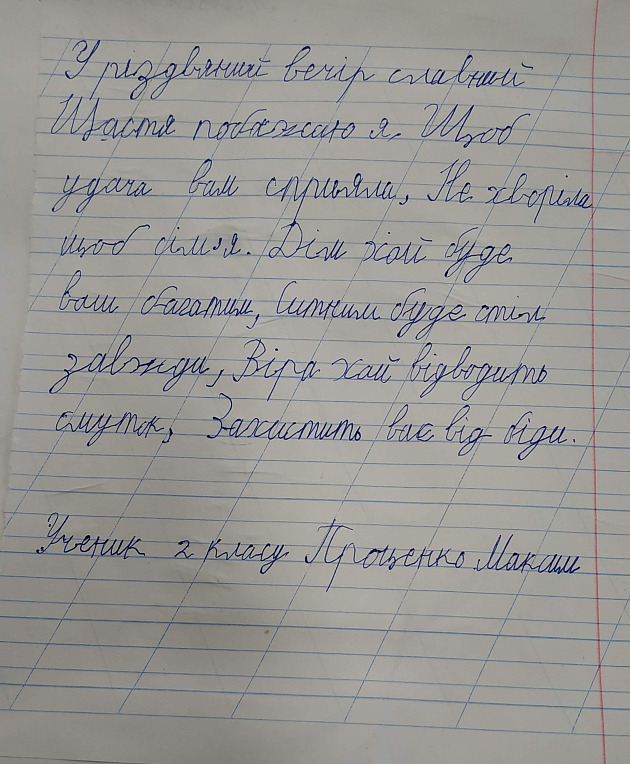 У різдвяний вечір славний
Щастя побажаю я. Щоб
удача вам сприяла, Не хворіла
щоб сім'я. Дім хай буде
ваш багатим, Ситним буде стіл
завжди, Віра хай відводить
смуток, Захистить вас від біди.
Ученик 2 класу Проценко Максим